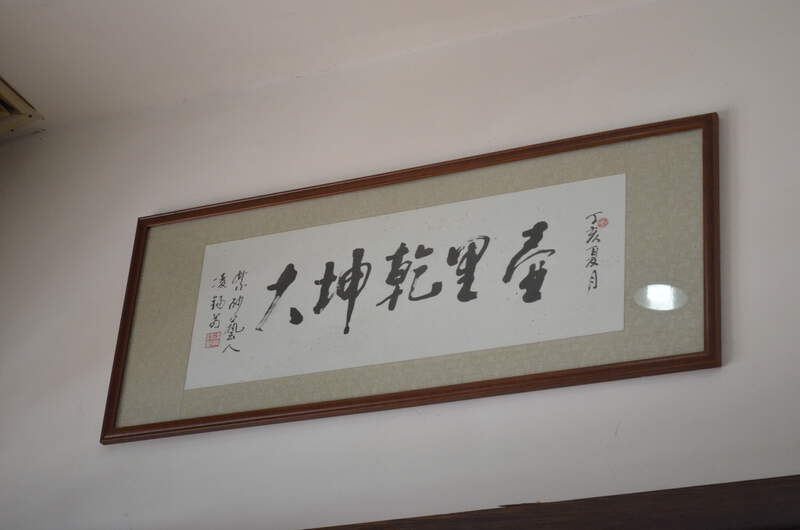 丁亥夏月
壶里乾坤大
紫砂藝人
凌錫苟